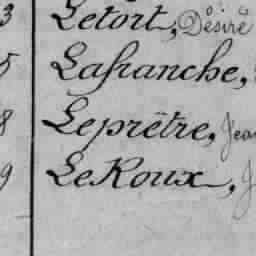 3 Letort, Désiré
5 Lafranche,
8 Leprêtre, Jean
9 LeRoux,